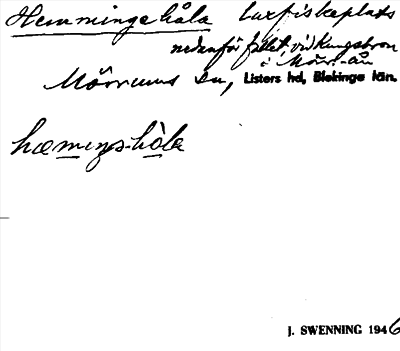 Hemmingehåla laxfiskeplats
nedanför fallet vid Kungsbron
i Mörr.-ån
Mörrums sn, Listers hd, Blekinge län.
hæmiŋs-hòla
J. SWENNING 1946